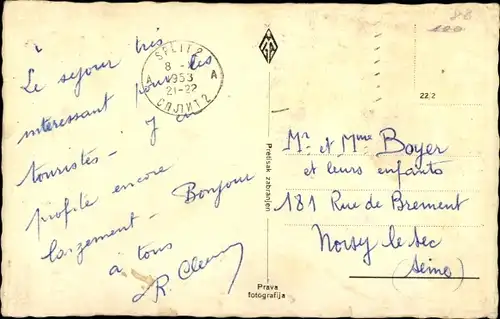 Le séjour très
intéressant pour les
touristes - J'en
profite encore
largement - Bonjour
à tous
R.
SPLIT 2
8
1953
A A
21-22
СПЛИТ 2
Pretisak zabranjen
Prava
fotografija
88
100
22/2
Mr et Mme Boyer
et leurs enfants
181 Rue de Brement
Noisy le Sec
(Seine)